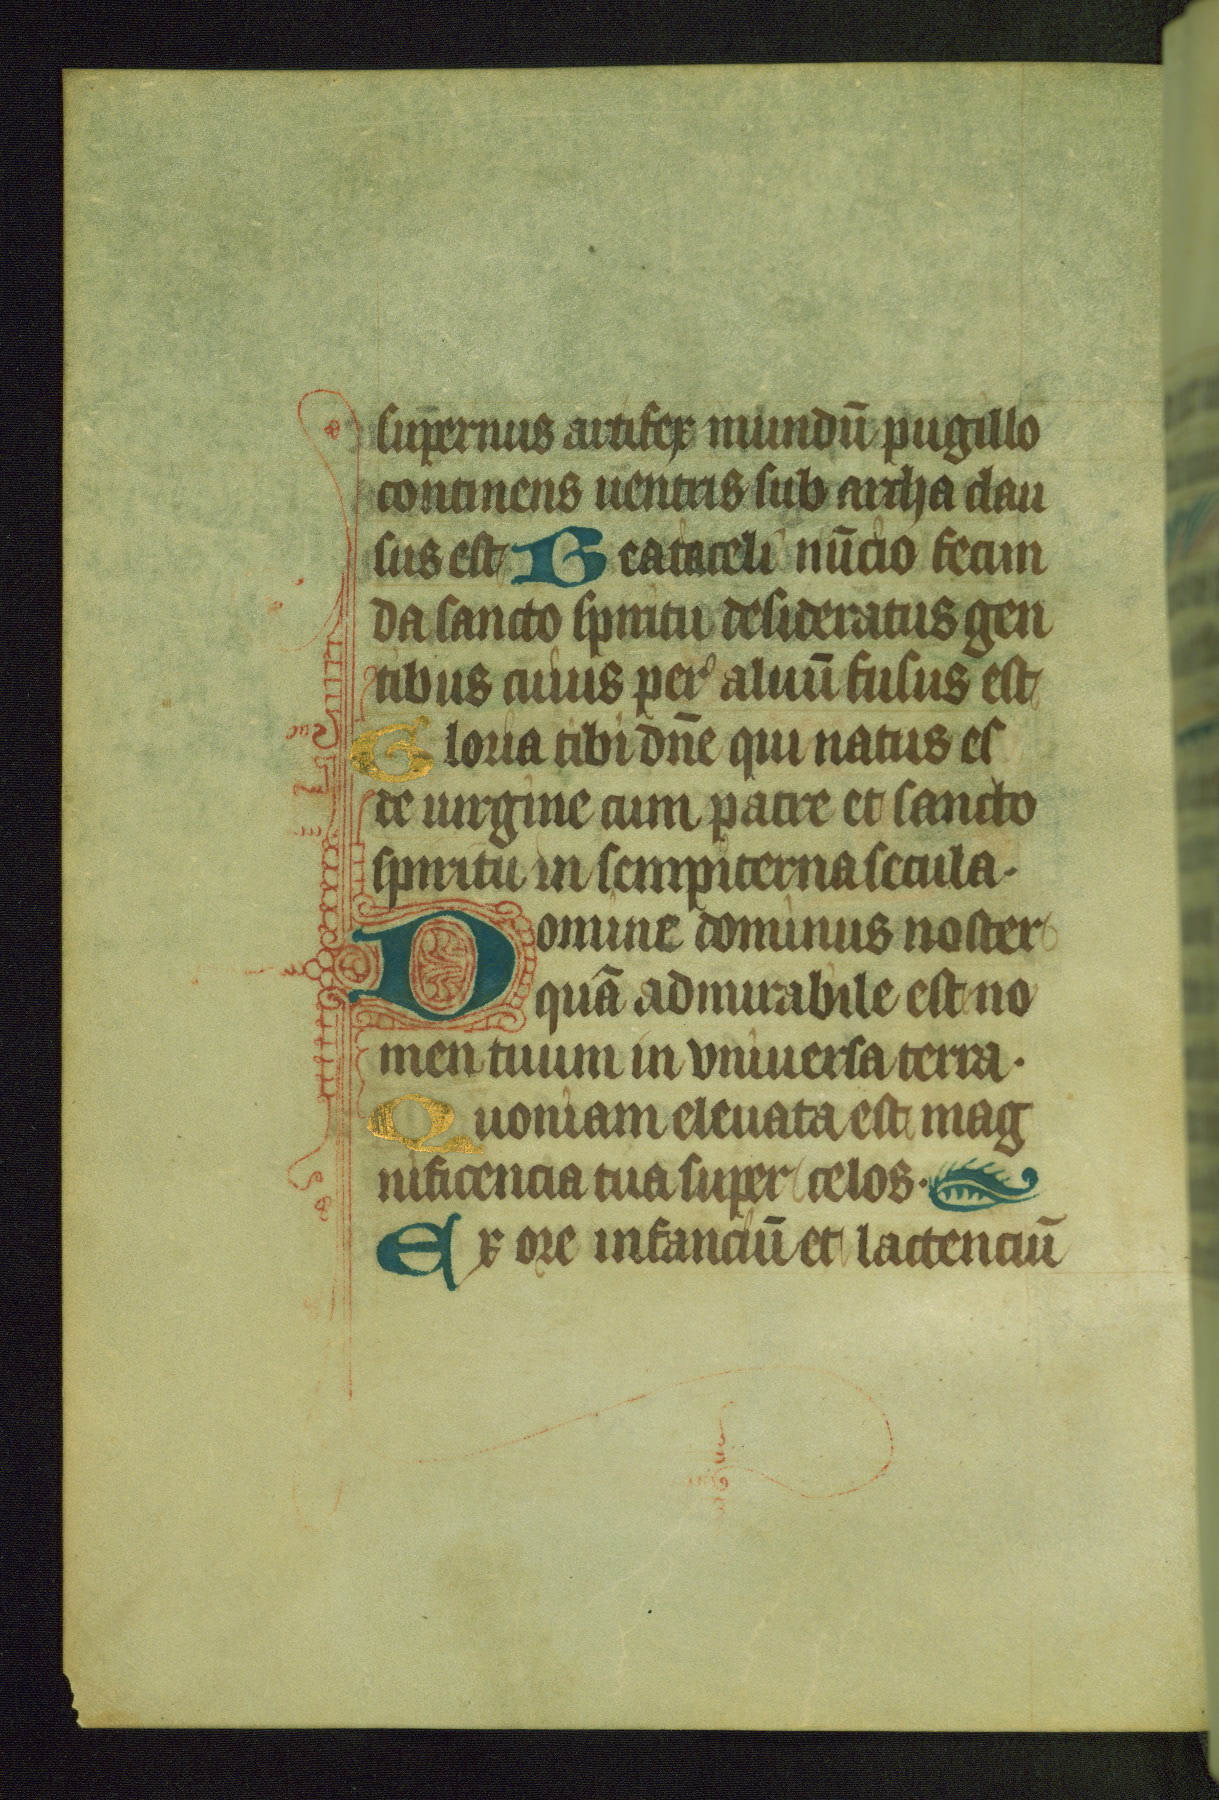 sup̄ernus artifex mundū pugillo
continens uentris sub archa clau
sus est Beata celi nūcio fecun
da sancto spiritu desideratus gen
tibus cuius per aluū fusus est
Gloria tibi dn̄e qui natus es
de uirgine cum patre et sancto
spiritu in sempiterna secula·
Domine dominus noster
quā admirabile est no
men tuum in vniuersa terra·
Quoniam eleuata est mag
nificencia tua super celos·
Ex ore infanciū et lactenciū